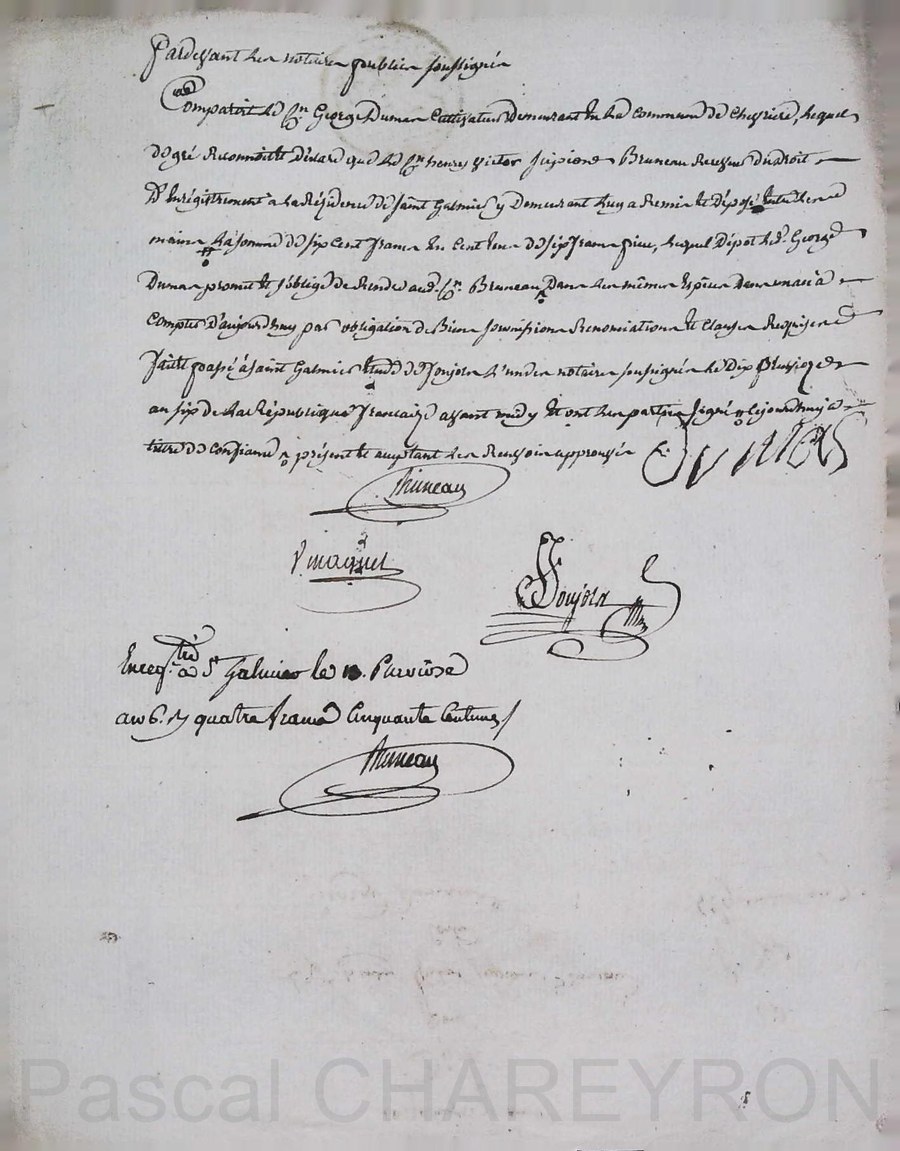 Pardevant les notaires publics soussignés
Comparait le Cn George Dumas Cultivateur Demeurant En La Commune de Chevrière, Lequel
de gré Reconnoit et Déclare que le Cn henry victor Scipion Bruneau Receveur du droit
D'Enrégistrement a La Résidence de saint Galmier y Demeurant Luy a Remis et Déposé Entre les
mains La somme de six Cent francs En Cent de six francs piece, Lequel Dépot Led. George
Dumas promet et s'oblige de Rendre aud. Cn. Bruneau Dans les mêmes Espèces Dans
Compter D'aujourdhuy par obligation de Biens soumissions Renonciations et Clauses Requises
fait et passé à saint Galmier Etude de Joujola L'un des notaires soussignés Le Dix
an six de La République francaise avant midy Et ont les parties signé Cejourdhuy a
titre de Confiance présent et acceptant Les Renvois approuvés Dumas
Bruneau
Joujola
Enregtré a St Galmier le Pluviose
an 6. R quatre francs Cinquante Centimes
Bruneau
Pascal CHAREYRON